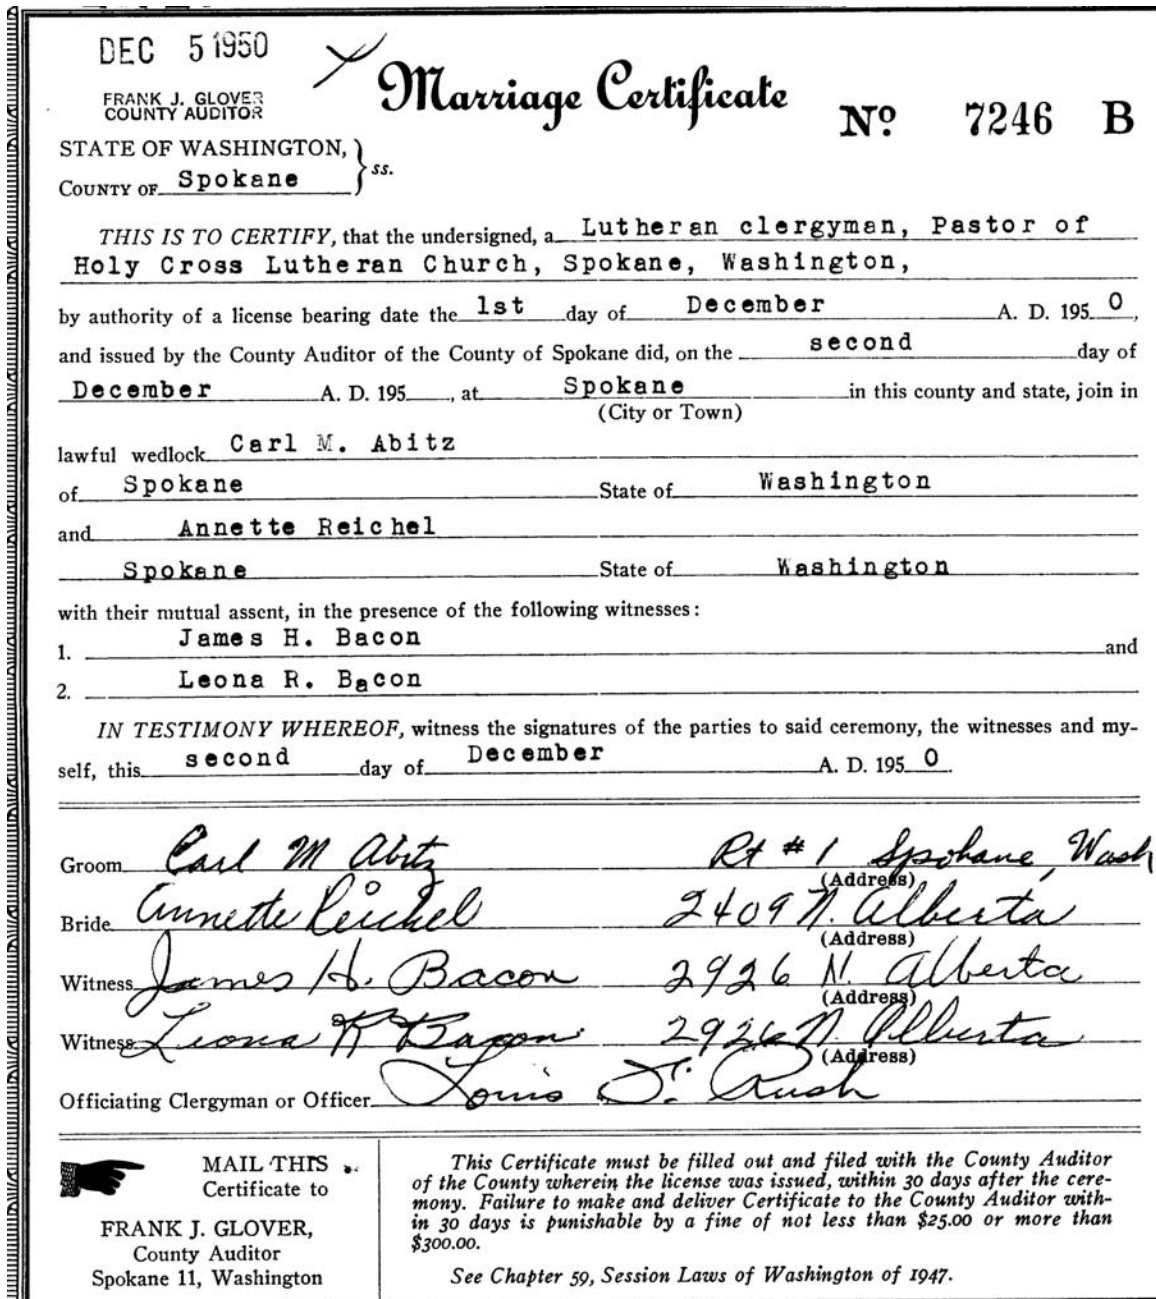 DEC 5 1950
Marriage Certificate
FRANK J. GLOVER
COUNTY AUDITOR
No. 7246 B
STATE OF WASHINGTON,
COUNTY OF Spokane } ss.
THIS IS TO CERTIFY, that the undersigned, a Lutheran clergyman, Pastor of
Holy Cross Lutheran Church, Spokane, Washington,
by authority of a license bearing date the 1st day of December A. D. 195 0,
and issued by the County Auditor of the County of Spokane did, on the second day of
December A. D. 195 , at Spokane in this county and state, join in
(City or Town)
lawful wedlock Carl M. Abitz
of Spokane State of Washington
and Annette Reichel
Spokane State of Washington
with their mutual assent, in the presence of the following witnesses:
1. James H. Bacon and
2. Leona R. Bacon
IN TESTIMONY WHEREOF, witness the signatures of the parties to said ceremony, the witnesses and my-
self, this second day of December A. D. 195 0.
Groom Carl M Abitz Rt #1 Spokane, Wash
(Address)
Bride Annette Reichel 2409 N. Alberta
(Address)
Witness James H. Bacon 2926 N. Alberta
(Address)
Witness Leona R Bacon 2926 N. Alberta
(Address)
Officiating Clergyman or Officer Louis T. Rush
MAIL THIS
Certificate to
FRANK J. GLOVER,
County Auditor
Spokane 11, Washington
This Certificate must be filled out and filed with the County Auditor
of the County wherein the license was issued, within 30 days after the cere-
mony. Failure to make and deliver Certificate to the County Auditor with-
in 30 days is punishable by a fine of not less than $25.00 or more than
$300.00.
See Chapter 59, Session Laws of Washington of 1947.